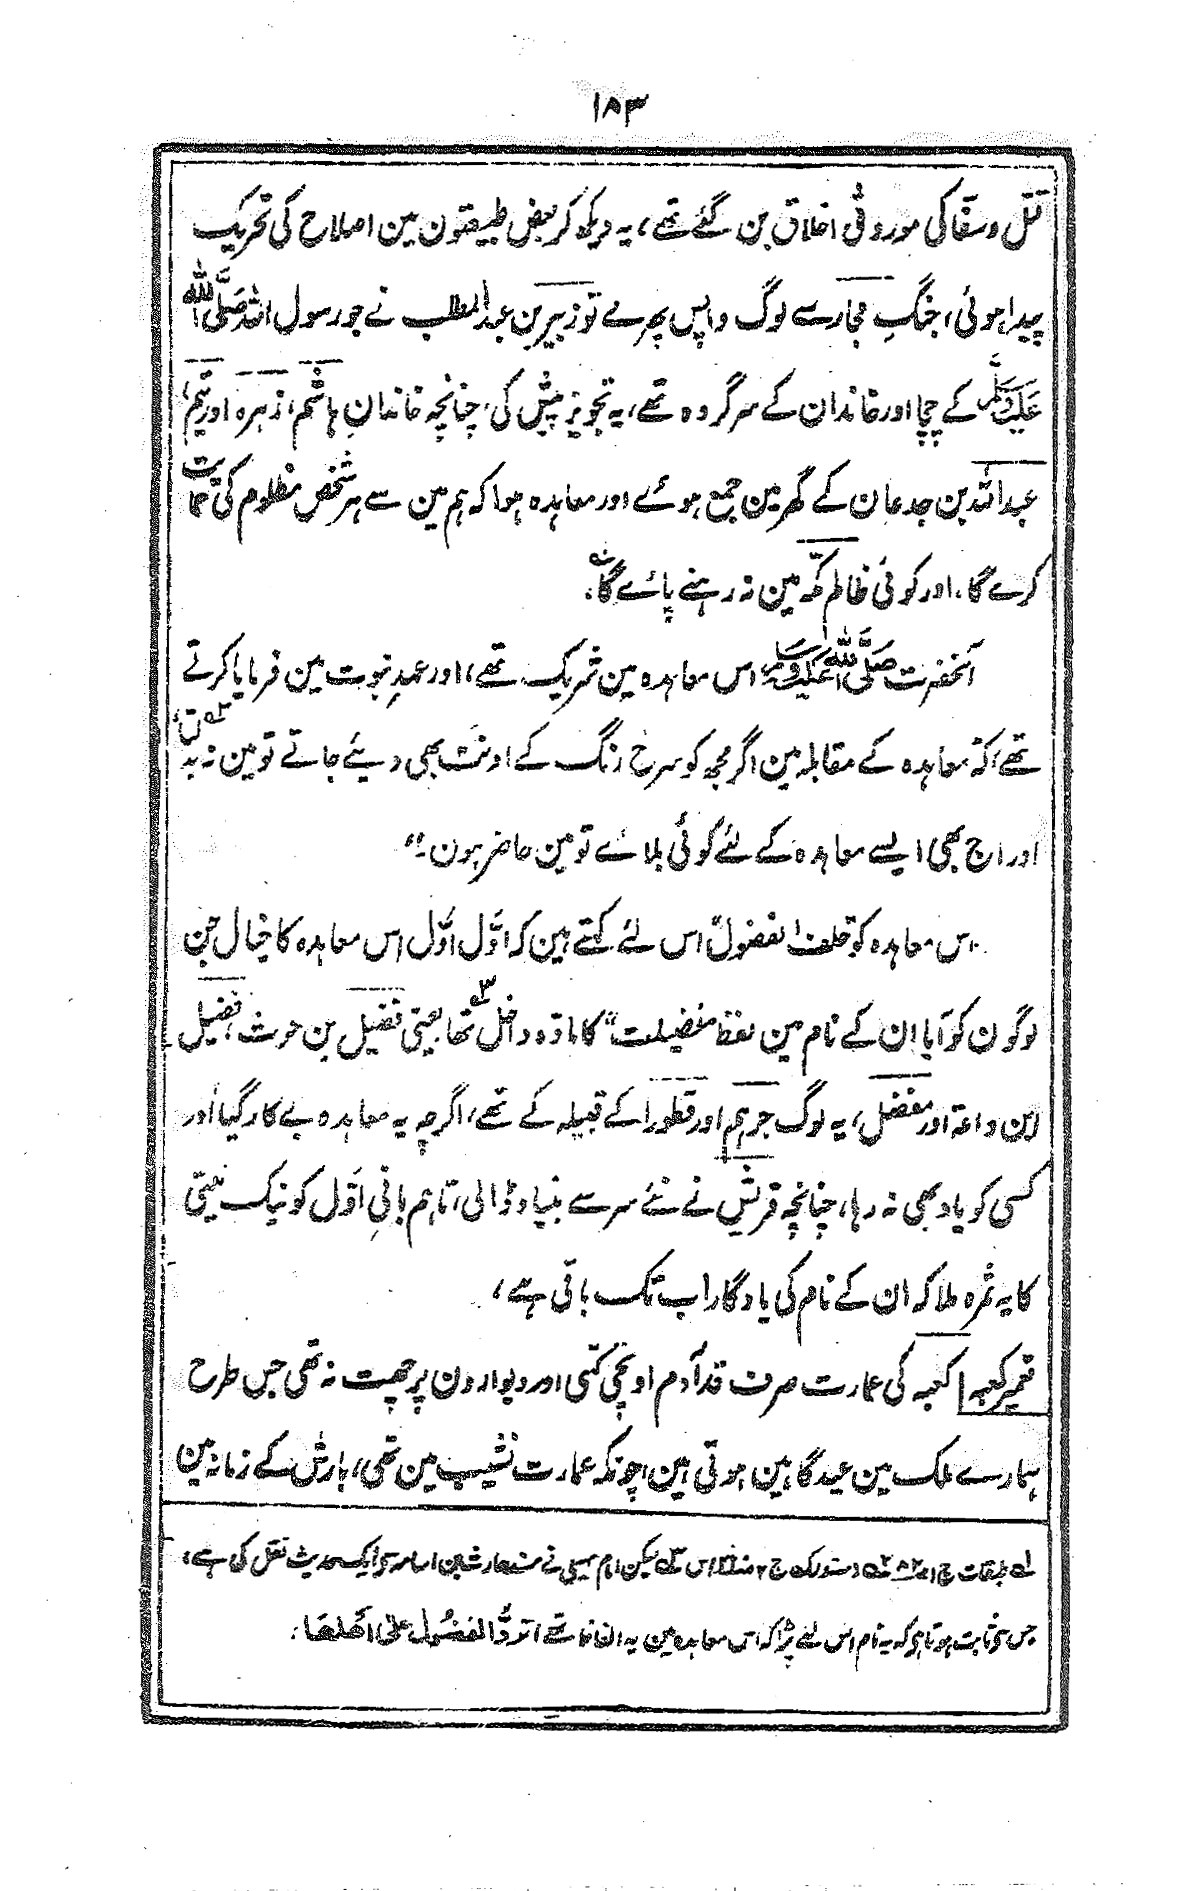 ۱۸۳
قتل و سفاکی موروثی اخلاق بن گئے تھے، یہ دیکھ کر بعض طبیعتون مین اصلاح کی تحریک
پیدا ہوئی، جنگِ فجار سے لوگ واپس پھرے تو زبیر بن عبدالمطلب نے جو رسول اللہ صَلَّی اللہ
عَلَیْہِ وَسَلَّم کے چچا اور خاندان کے سرگروہ تھے، یہ تجویز پیش کی، چنانچہ خاندانِ ہاشم، زہرہ اور تیم،
عبداللہ بن جدعان کے گھر مین جمع ہوئے اور معاہدہ ہوا کہ ہم مین سے ہر شخص مظلوم کی حمایت
کرے گا، اور کوئی ظالم مکّہ مین نہ رہنے پائے گا،
آنحضرت صَلَّی اللہ عَلَیْہِ وَسَلَّم اس معاہدہ مین شریک تھے، اور عہدِ نبوت مین فرمایا کرتے
تھے، کہ "معاہدہ کے مقابلہ مین اگر مجھ کو سرخ رنگ کے اونٹ بھی دیئے جاتے تو مین نہ بدلتا،
اور آج بھی ایسے معاہدہ کے لئے کوئی بلائے تو مین حاضر ہون۔"
اس معاہدہ کو حلف الفضول اس لئے کہتے ہین کہ اوّل اوّل اس معاہدہ کا خیال جن
لوگون کو آیا ان کے نام مین لفظ "فضیلت" کا مادّہ داخل تھا یعنی فضیل بن حرث، فضیل
ابن وداعۃ اور مفضل، یہ لوگ جرہم اور قطورا کے قبیلہ کے تھے، اگرچہ یہ معاہدہ بے کار گیا اور
کسی کو یاد بھی نہ رہا، چنانچہ قریش نے نئے سرے سے بنیاد ڈالی، تاہم بانیِ اوّل کو نیک نیتی
کا یہ ثمرہ ملا کہ ان کے نام کی یادگار اب تک باقی ہے،
تعمیر کعبہ کعبہ کی عمارت صرف قدِ آدم اونچی تھی اور دیوارون پر چھت نہ تھی جس طرح
ہمارے ملک مین عیدگاہین ہوتی ہین، چونکہ عمارت نشیب مین تھی، بارش کے زمانہ مین
لہ طبقات ج ۱ ص ۸۲ لہ مستدرک ج ۲ ص ۲۲۰ لیکن امام سہیلی نے مسند حارث بن اسامہ سے ایک حدیث نقل کی ہے،
جس سے ثابت ہوتا ہے کہ یہ نام اس لئے پڑا کہ اس معاہدہ مین یہ الفاظ تھے، ترد الفضول علیٰ اھلھا،